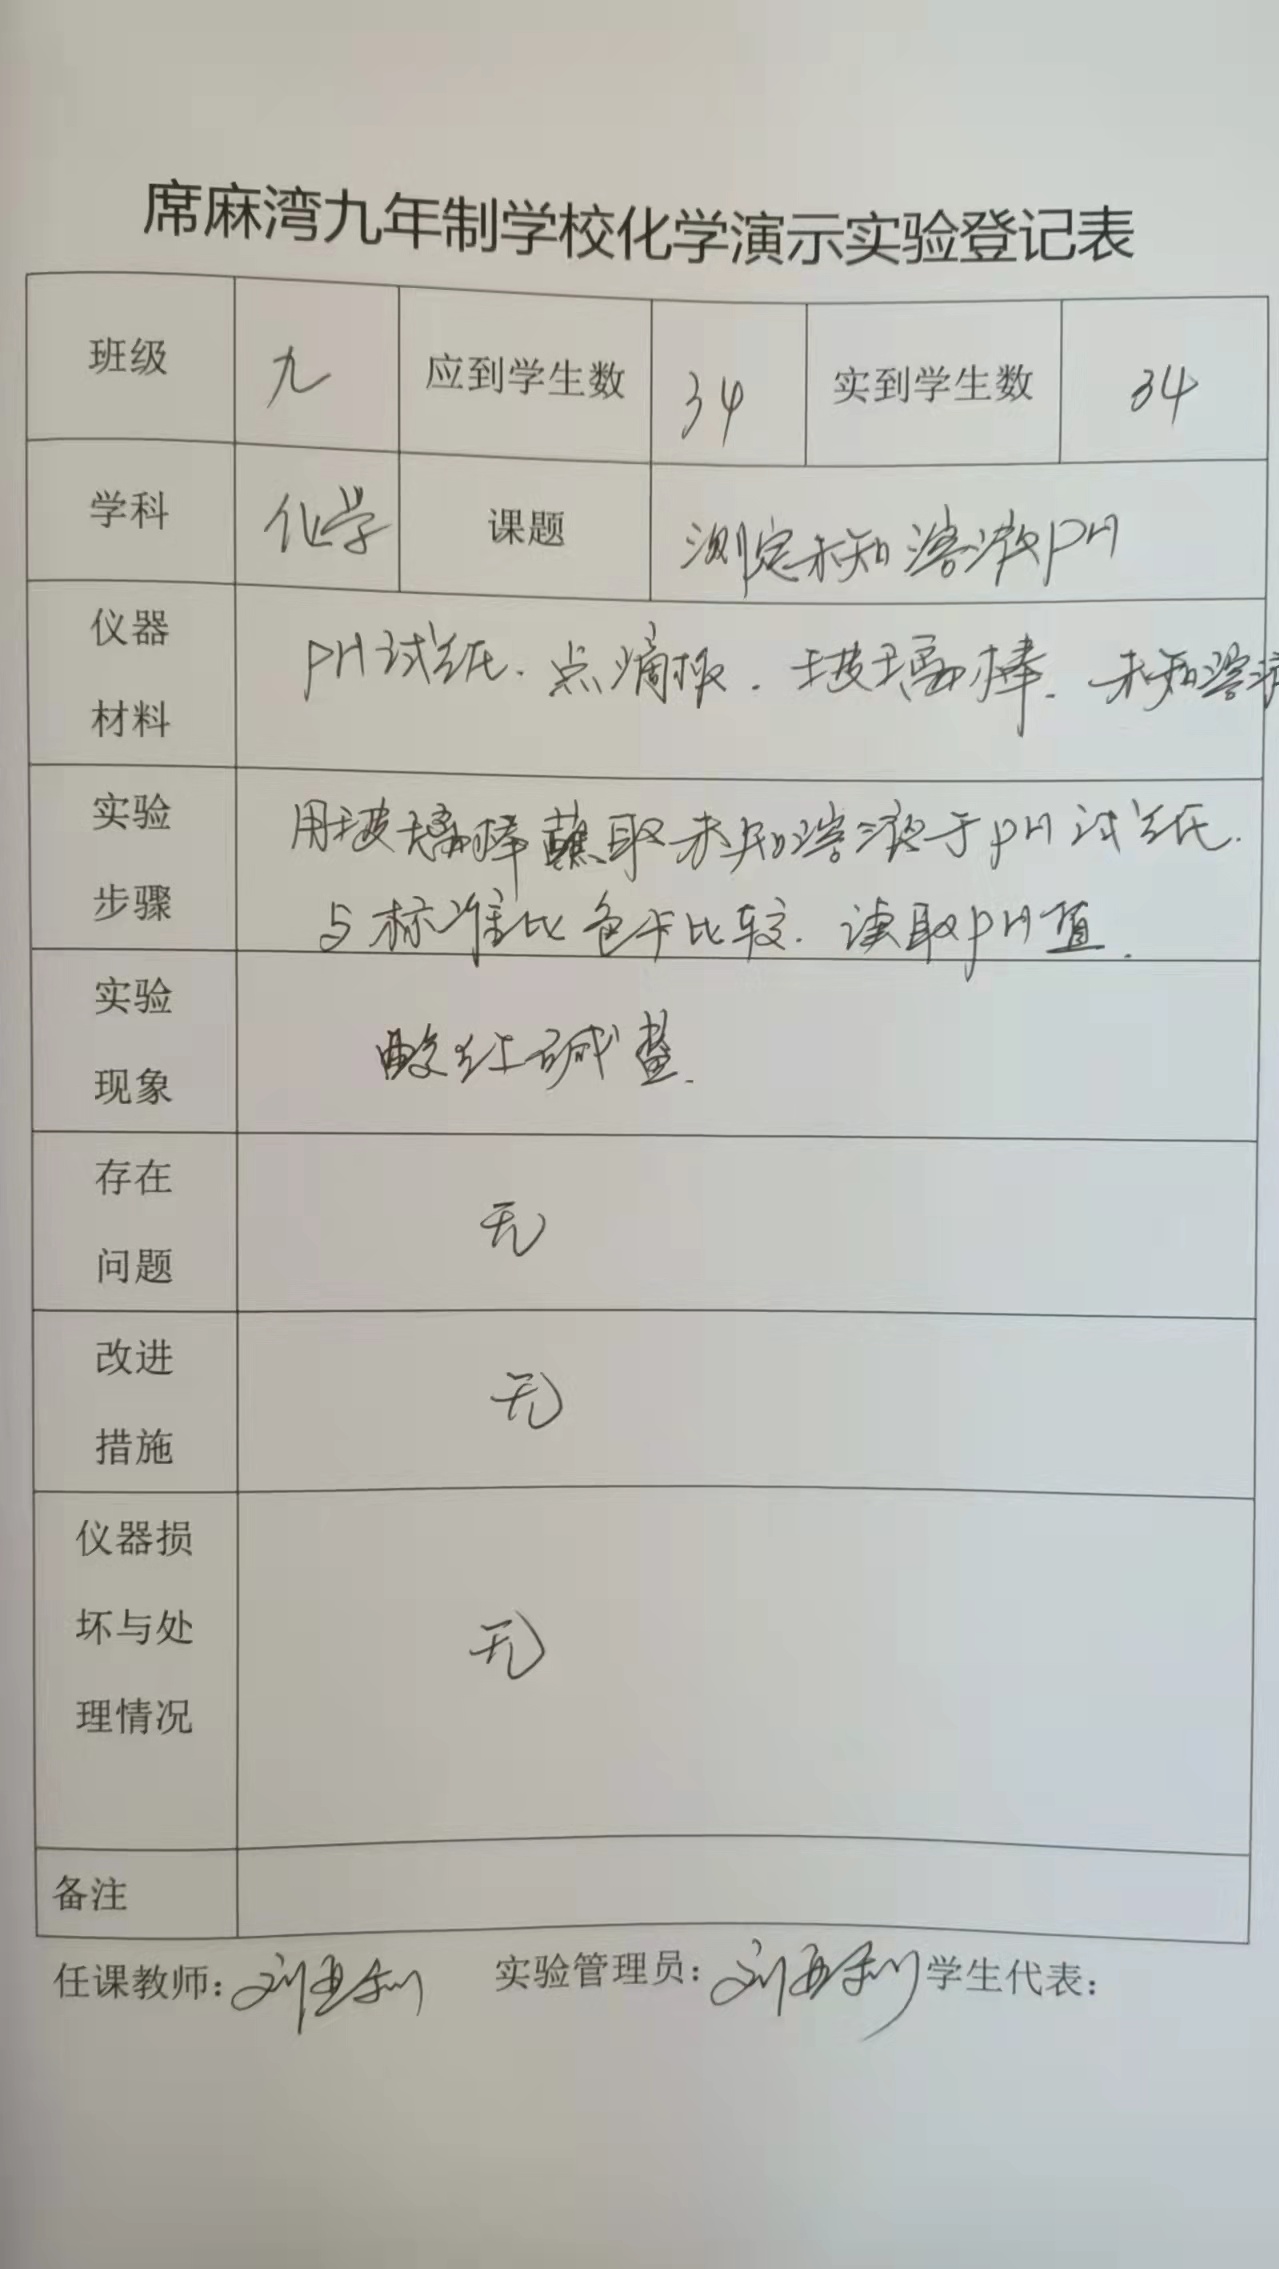 席麻湾九年制学校化学演示实验登记表
班级 九 应到学生数 34 实到学生数 34
学科 化学 课题 测定未知溶液PH
仪器
材料
PH试纸.点滴板.玻璃棒.未知溶液
实验
步骤
用玻璃棒蘸取未知溶液于PH试纸.
与标准比色卡比较.读取PH值.
实验
现象
酸红碱蓝.
存在
问题
无
改进
措施
无
仪器损
坏与处
理情况
无
备注
任课教师:刘亚利 实验管理员:刘亚利 学生代表: